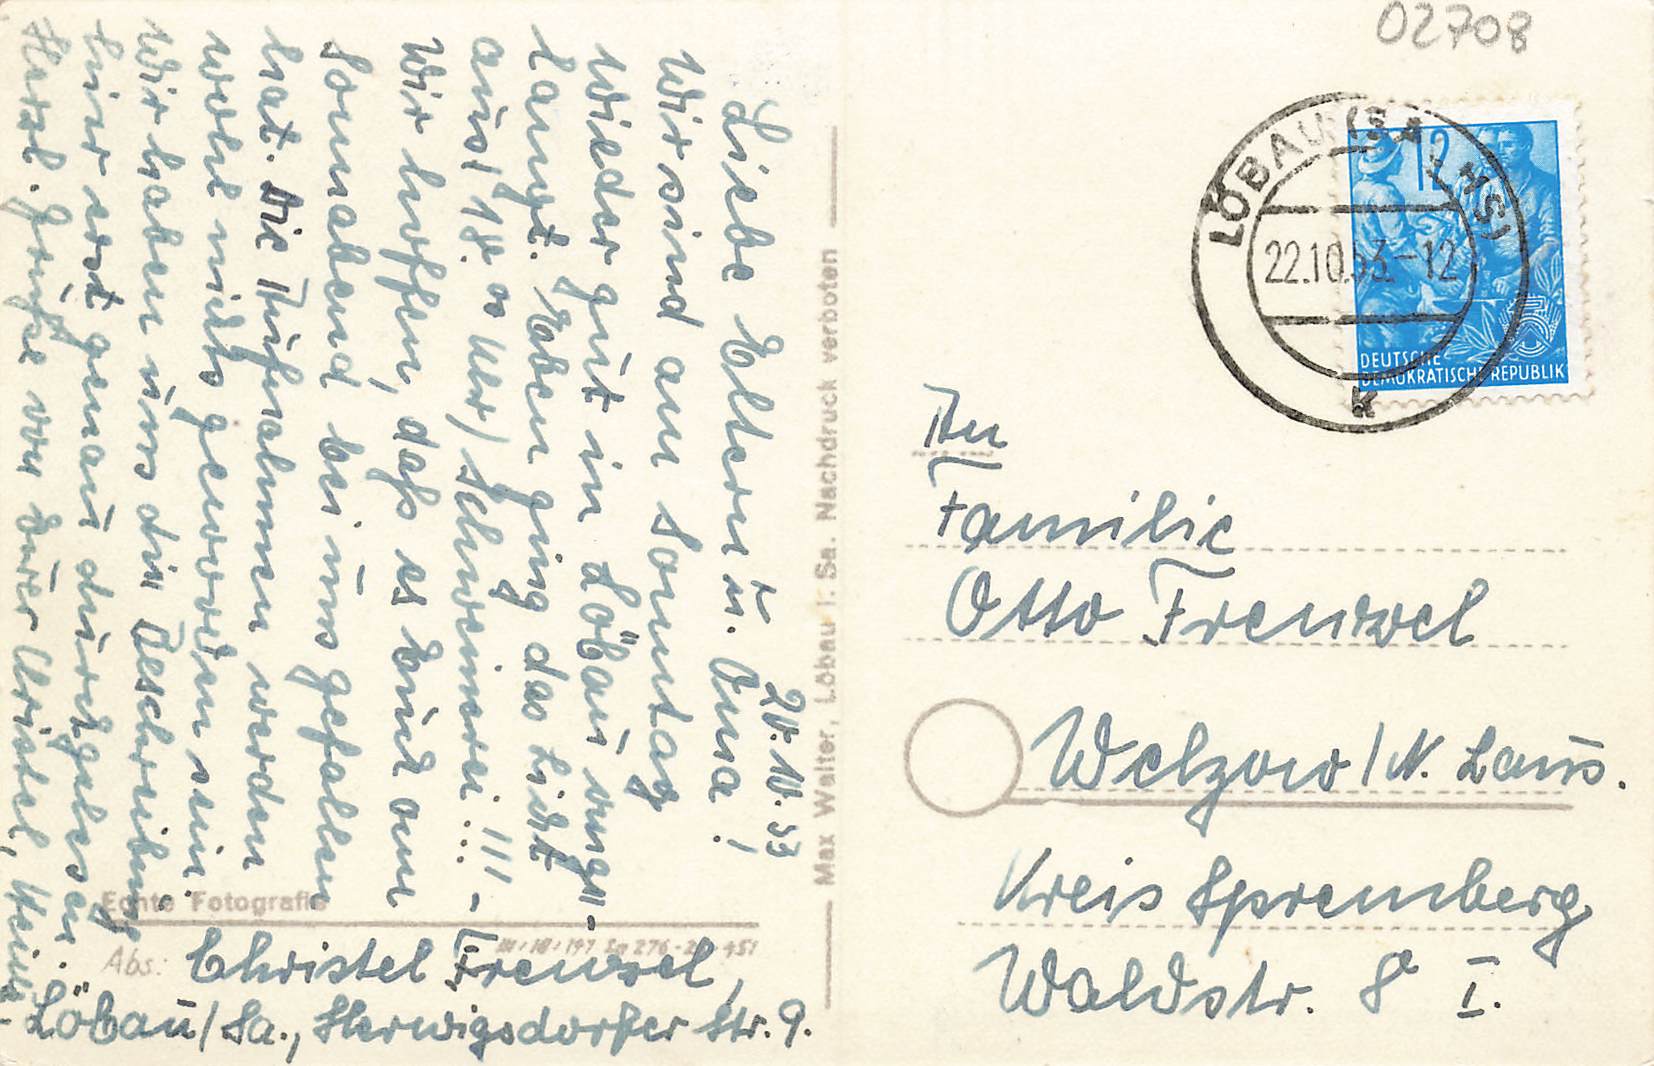 02708
LÖBAU (SACHS)
22.10.53.-12
K
12
5
DEUTSCHE
DEMOKRATISCHE REPUBLIK
20.10.53
Liebe Eltern u. Oma!
Wir sind am Sonntag
wieder gut in Löbau ange-
langt. Eben ging das Licht
aus (18.00 Uhr) Schweinerei!!! -
Wir hoffen, daß es Euch am
Sonnabend bei uns gefallen
hat. Die Aufnahmen werden
wohl nichts geworden sein.
Wir haben uns die Beschreibung
hier erst genau durchgelesen.
Herzl. Grüße von Eurer Christel, Heinz
Echte Fotografie
Abs.: Christel Frenzel,
Löbau/Sa., Herwigsdorfer Str. 9.
Max Walter, Löbau i. Sa. Nachdruck verboten
An
Familie
Otto Frenzel
Welzow/N. Laus.
Kreis Spremberg
Waldstr. 8 I.